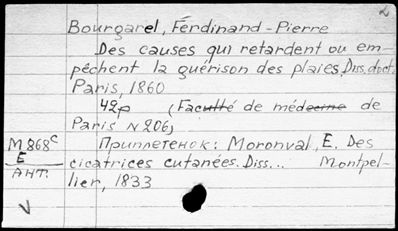 2
Bourgarel, Ferdinand-Pierre
Des causes qui retardent ou em
pêchent la guérison des plaies. Diss. doct.
Paris, 1860
42p (Faculté de médecine de
Paris N 206)
M 868c
E
АНТ.
V
Приплетенок: Moronval, E. Des
cicatrices cutanées. Diss... Montpel-
lier, 1833